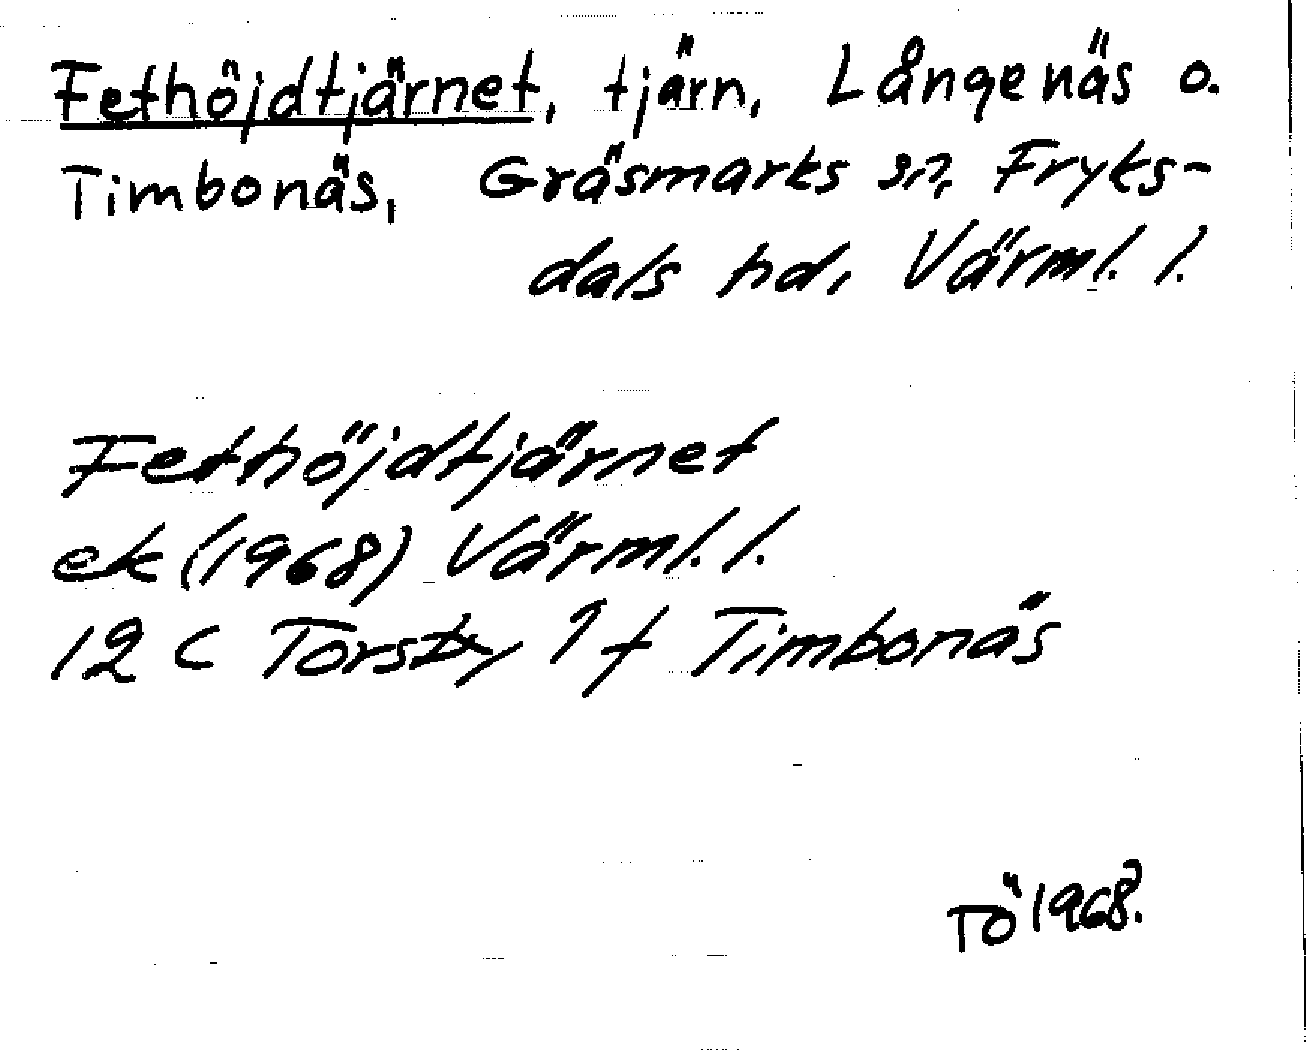 Fethöjdtjärnet, tjärn, Långenäs o.
Timbonäs, Gräsmarks sn, Fryks-
dals hd, Värml. l.
Fethöjdtjärnet
ek (1968) Värml. l.
12 C Torsby 9 f Timbonäs
TÖ 1968.